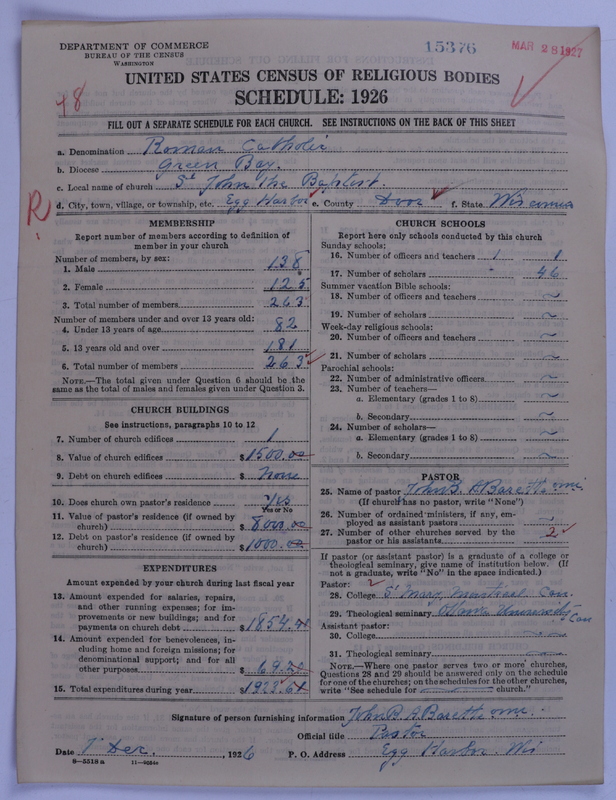 DEPARTMENT OF COMMERCE
BUREAU OF THE CENSUS
WASHINGTON
15376
MAR 28 1927
UNITED STATES CENSUS OF RELIGIOUS BODIES
SCHEDULE: 1926
48
FILL OUT A SEPARATE SCHEDULE FOR EACH CHURCH. SEE INSTRUCTIONS ON THE BACK OF THIS SHEET
a. Denomination Roman Catholic
b. Diocese Green Bay.
c. Local name of church St John the Baptist.
R
d. City, town, village, or township, etc. Egg Harbor e. County Door f. State Wisconsin
MEMBERSHIP
Report number of members according to definition of
member in your church
Number of members, by sex:
1. Male 138
2. Female 125
3. Total number of members 263
Number of members under and over 13 years old:
4. Under 13 years of age 82
5. 13 years old and over 181
6. Total number of members 263
NOTE.—The total given under Question 6 should be the
same as the total of males and females given under Question 3.
CHURCH BUILDINGS
See instructions, paragraphs 10 to 12
7. Number of church edifices 1
8. Value of church edifices $1500.00
9. Debt on church edifices $None
10. Does church own pastor's residence Yes
Yes or No
11. Value of pastor's residence (if owned by
church) $8000.00
12. Debt on pastor's residence (if owned by
church) $1000.00
EXPENDITURES
Amount expended by your church during last fiscal year
13. Amount expended for salaries, repairs,
and other running expenses; for im-
provements or new buildings; and for
payments on church debt $1854.
14. Amount expended for benevolences, in-
cluding home and foreign missions; for
denominational support; and for all
other purposes $69.
15. Total expenditures during year $1923.
CHURCH SCHOOLS
Report here only schools conducted by this church
Sunday schools:
16. Number of officers and teachers 1 1
17. Number of scholars 46
Summer vacation Bible schools:
18. Number of officers and teachers ~
19. Number of scholars ~
Week-day religious schools:
20. Number of officers and teachers ~
21. Number of scholars ~
Parochial schools:
22. Number of administrative officers ~
23. Number of teachers—
a. Elementary (grades 1 to 8) ~
b. Secondary ~
24. Number of scholars—
a. Elementary (grades 1 to 8) ~
b. Secondary ~
PASTOR
25. Name of pastor John B. A Barette omi.
(If church has no pastor, write "None")
26. Number of ordained ministers, if any, em-
ployed as assistant pastors ~
27. Number of other churches served by the
pastor or his assistants 2
If pastor (or assistant pastor) is a graduate of a college or
theological seminary, give name of institution below. (If
not a graduate, write "No" in the space indicated.)
Pastor:
28. College St Mary, Montreal Can.
29. Theological seminary Ottawa University Can
Assistant pastor:
30. College
31. Theological seminary
NOTE.—Where one pastor serves two or more churches,
Questions 28 and 29 should be answered only on the schedule
for one of the churches; on the schedules for the other churches,
write "See schedule for church."
Signature of person furnishing information John B. A. Barette omi.
Official title Pastor
Date 7 Dec., 1926 P. O. Address Egg Harbor. Wis
8—5518 a